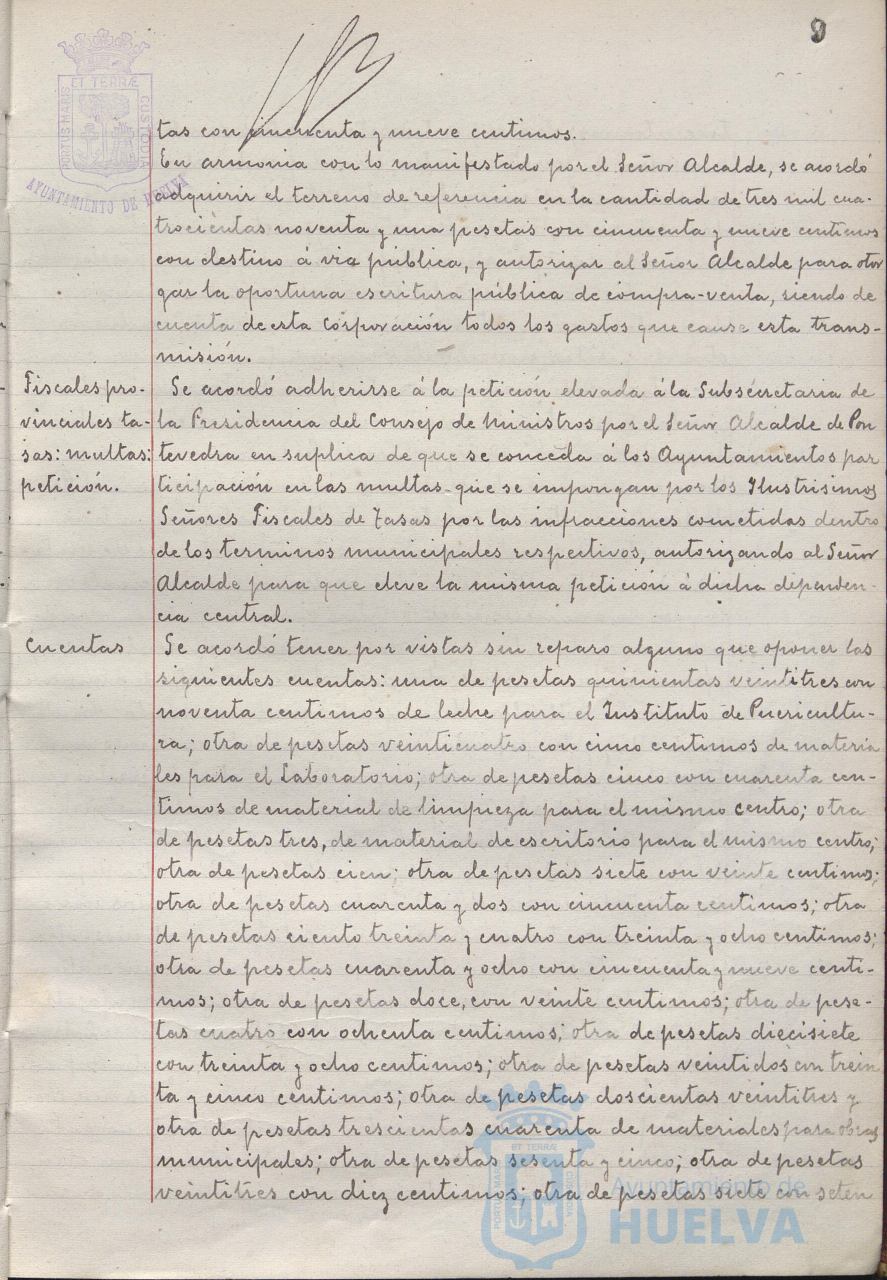 9
PORTUS MARIS ET TERRÆ CUSTODIA
AYUNTAMIENTO DE HUELVA
tas con cincuenta y nueve centimos.
En armonia con lo manifestado por el Señor Alcalde, se acordó
adquirir el terreno de referencia en la cantidad de tres mil cua-
trocientas noventa y una pesetas con cincuenta y nueve centimos
con destino á via pública, y autorizar al Señor Alcalde para otor
gar la oportuna escritura pública de compra-venta, siendo de
cuenta de esta Corporación todos los gastos que cause esta trans-
misión.
Fiscales pro-
vinciales ta-
sas: multas:
petición.
Se acordó adherirse á la petición elevada á la Subsecretaria de
la Presidencia del Consejo de Ministros por el Señor Alcalde de Pon
tevedra en suplica de que se conceda á los Ayuntamientos par
ticipación en las multas que se impongan por los Ilustrisimos
Señores Fiscales de Tasas por las infracciones cometidas dentro
de los terminos municipales respectivos, autorizando al Señor
Alcalde para que eleve la misma petición á dicha dependen-
cia central.
Cuentas
Se acordó tener por vistas sin reparo alguno que oponer las
siguientes cuentas: una de pesetas quinientas veintitres con
noventa centimos de leche para el Instituto de Puericultu-
ra; otra de pesetas veinticuatro con cinco centimos de materia
les para el Laboratorio; otra de pesetas cinco con cuarenta cen-
timos de material de limpieza para el mismo centro; otra
de pesetas tres, de material de escritorio para el mismo centro;
otra de pesetas cien; otra de pesetas siete con veinte centimos;
otra de pesetas cuarenta y dos con cincuenta centimos; otra
de pesetas ciento treinta y cuatro con treinta y ocho centimos;
otra de pesetas cuarenta y ocho con cincuenta y nueve centi-
mos; otra de pesetas doce, con veinte centimos; otra de pese-
tas cuatro con ochenta centimos; otra de pesetas diecisiete
con treinta y ocho centimos; otra de pesetas veintidos con trein
ta y cinco centimos; otra de pesetas doscientas veintitres y
otra de pesetas trescientas cuarenta de materiales para obras
municipales; otra de pesetas sesenta y cinco; otra de pesetas
veintitres con diez centimos; otra de pesetas siete con seten
PORTUS MARIS ET TERRÆ CUSTODIA
Ayuntamiento de
HUELVA